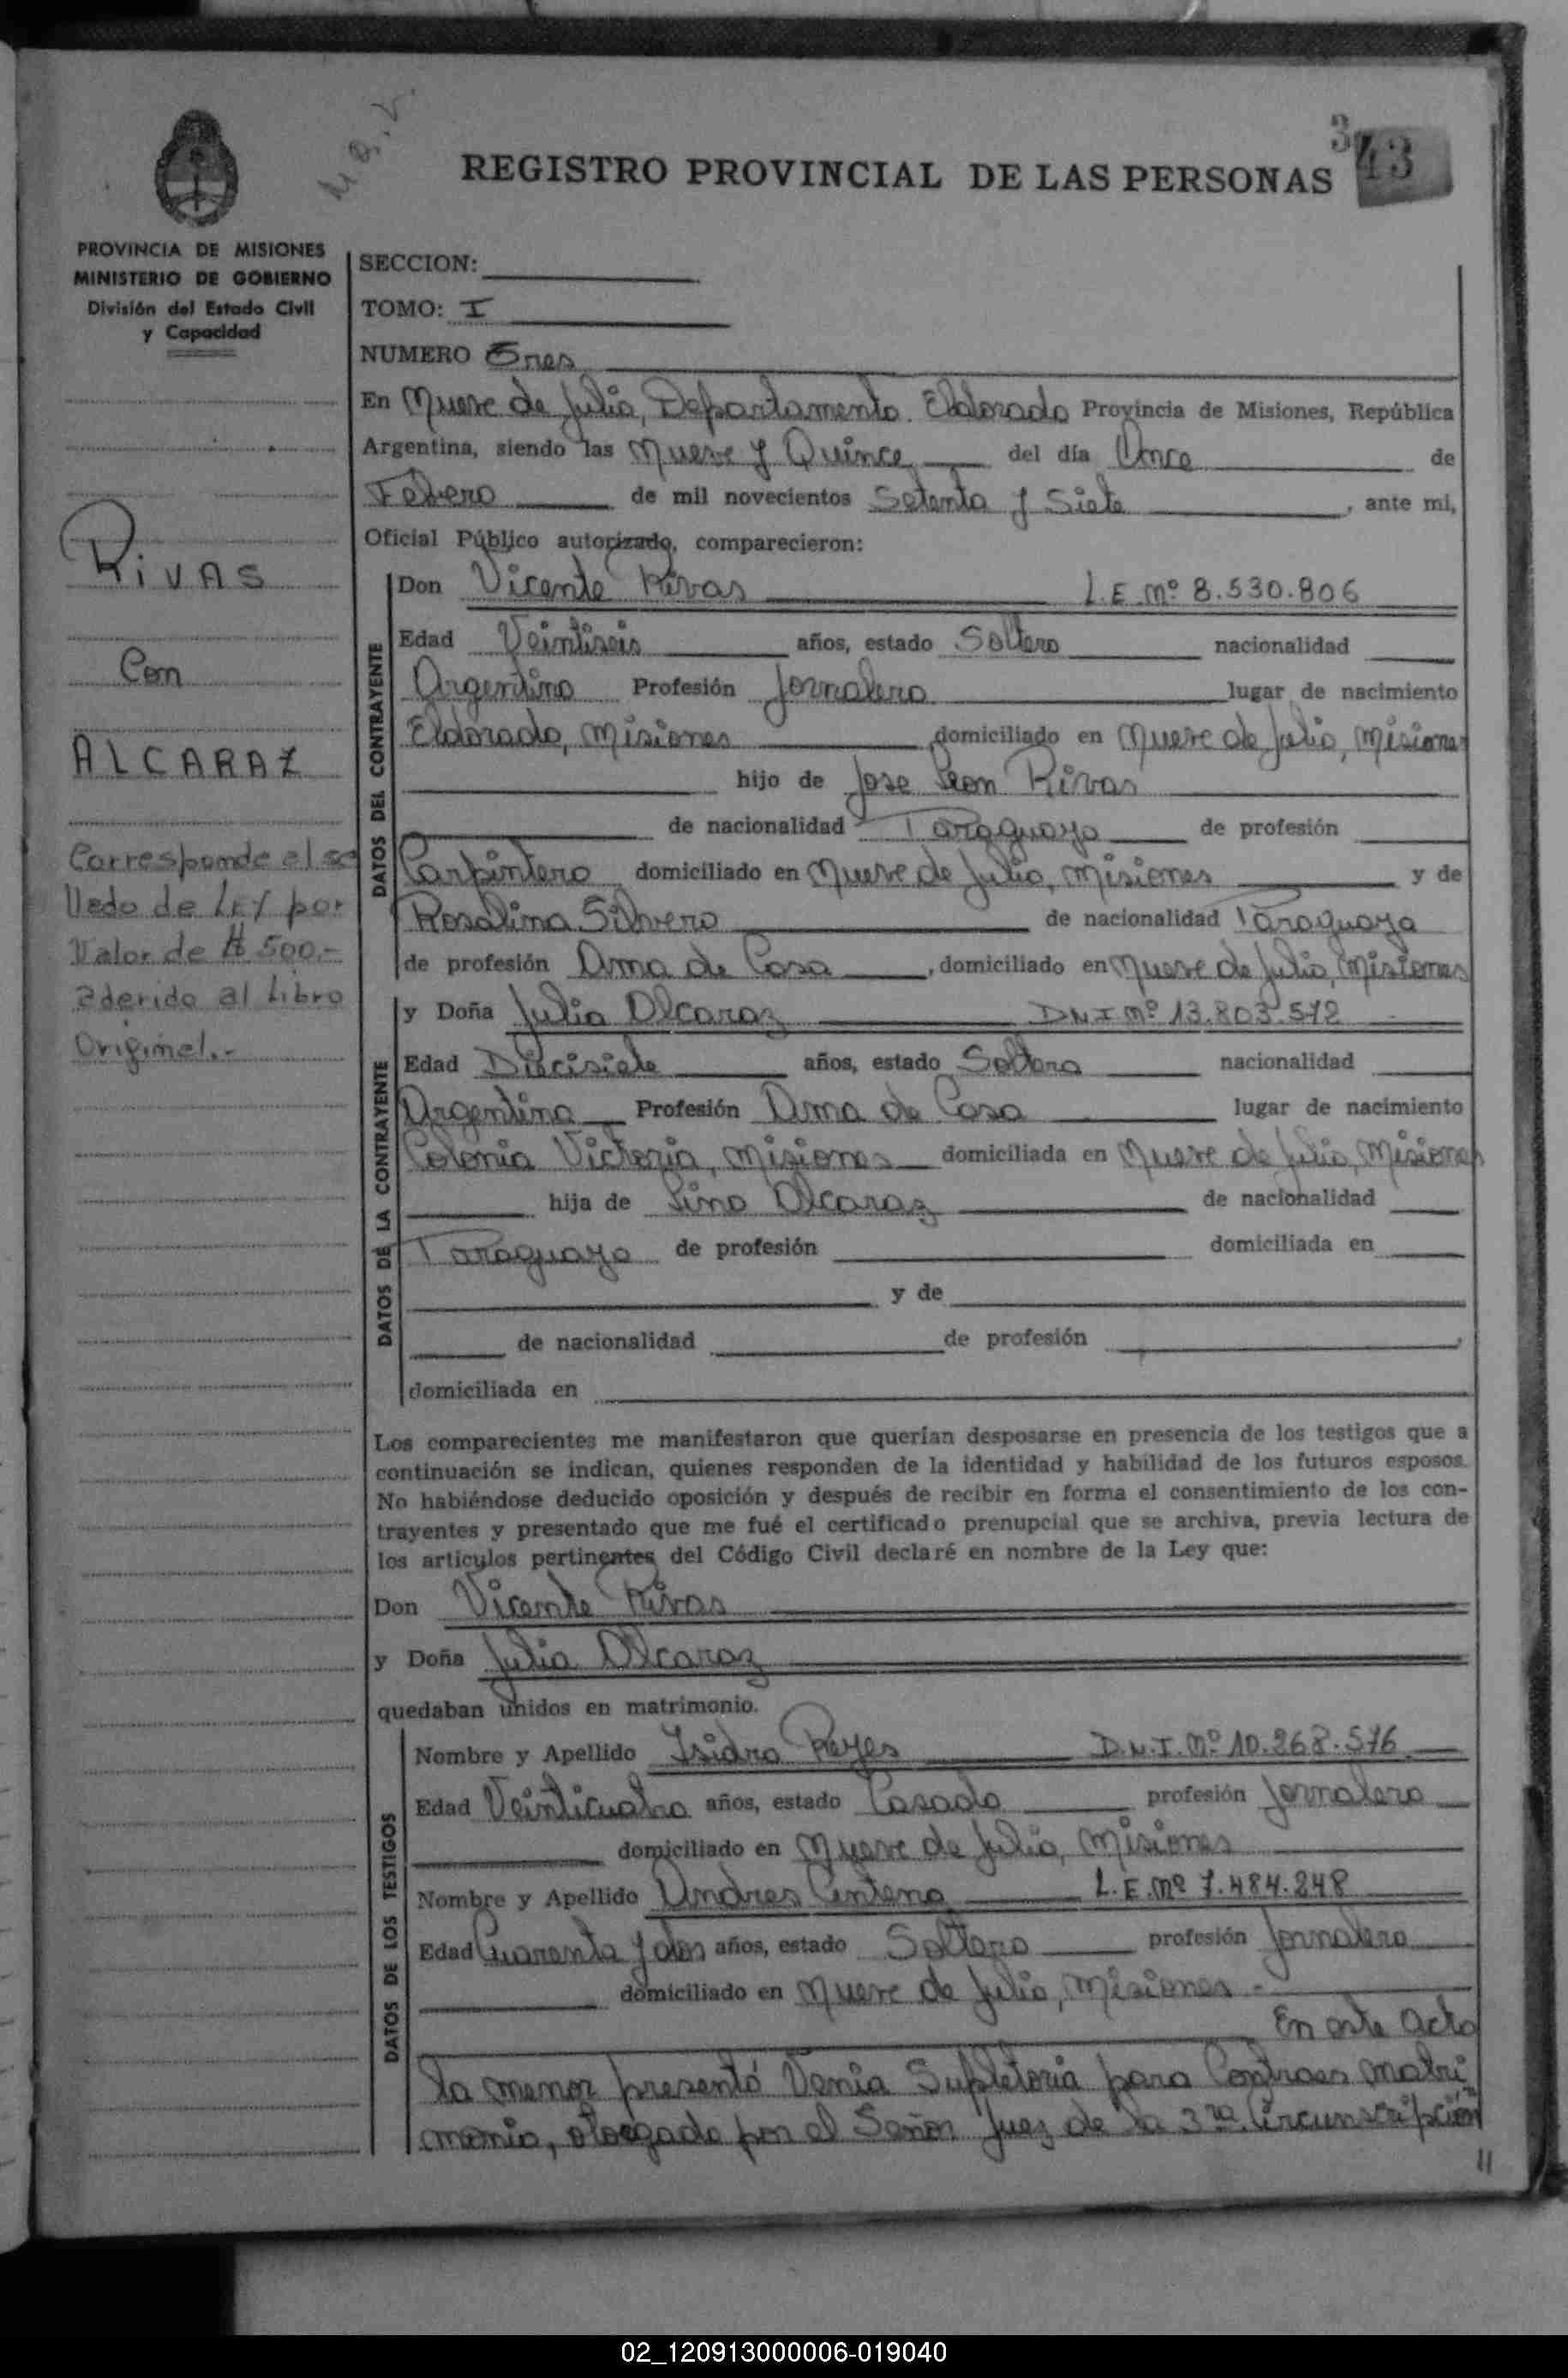 M.D.V.
REGISTRO PROVINCIAL DE LAS PERSONAS
3
43
PROVINCIA DE MISIONES
MINISTERIO DE GOBIERNO
División del Estado Civil
y Capacidad
RIVAS
Con
ALCARAZ
Corresponde el se
llado de LEY por
Valor de $ 500.-
aderido al Libro
Original.-
SECCION:
TOMO: I
NUMERO Tres
En Nueve de Julio, Departamento Eldorado Provincia de Misiones, República
Argentina, siendo las Nueve y Quince del día Once de
Febrero de mil novecientos Setenta y Siete, ante mi,
Oficial Público autorizado, comparecieron:
DATOS DEL CONTRAYENTE
Don Vicente Rivas L.E. Nº 8.530.806
Edad Veintiseis años, estado Soltero nacionalidad
Argentino Profesión Jornalero lugar de nacimiento
Eldorado, Misiones domiciliado en Nueve de Julio, Misiones
hijo de Jose Leon Rivas
de nacionalidad Paraguayo de profesión
Carpintero domiciliado en Nueve de Julio, Misiones y de
Rosalina Silvero de nacionalidad Paraguaya
de profesión Ama de Casa, domiciliado en Nueve de Julio, Misiones
DATOS DE LA CONTRAYENTE
y Doña Julia Alcaraz DNI Nº 13.803.572
Edad Diecisiete años, estado Soltera nacionalidad
Argentina Profesión Ama de Casa lugar de nacimiento
Colonia Victoria, Misiones domiciliada en Nueve de Julio, Misiones
hija de Lino Alcaraz de nacionalidad
Paraguayo de profesión domiciliada en
y de
de nacionalidad de profesión ,
domiciliada en
Los comparecientes me manifestaron que querían desposarse en presencia de los testigos que a
continuación se indican, quienes responden de la identidad y habilidad de los futuros esposos.
No habiéndose deducido oposición y después de recibir en forma el consentimiento de los con-
trayentes y presentado que me fué el certificado prenupcial que se archiva, previa lectura de
los artículos pertinentes del Código Civil declaré en nombre de la Ley que:
Don Vicente Rivas
y Doña Julia Alcaraz
quedaban unidos en matrimonio.
DATOS DE LOS TESTIGOS
Nombre y Apellido Isidro Reyes D.N.I. Nº 10.268.576
Edad Veinticuatro años, estado Casado profesión Jornalero
domiciliado en Nueve de Julio, Misiones
Nombre y Apellido Andres Centeno L.E. Nº 7.484.248
Edad Cuarenta y dos años, estado Soltero profesión Jornalero
domiciliado en Nueve de Julio, Misiones -
En este acto
la menor presentó Venia Supletoria para Contraer matri
monio, otorgado por el Señor Juez de la 3ra. Circunscripción
11
02_120913000006-019040